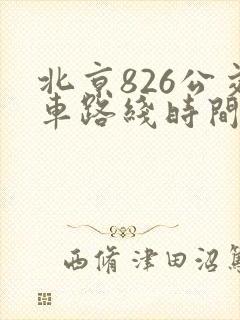 北京826公交
車路綫時間
西脩津田沼篤